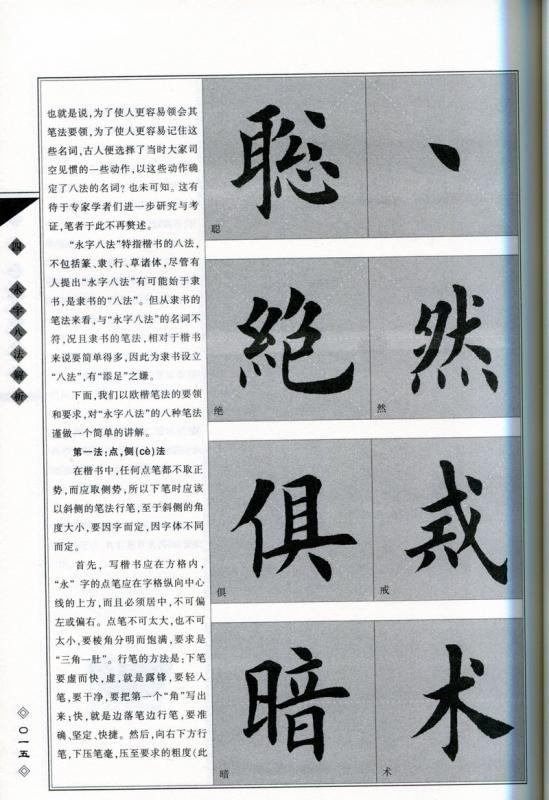 也就是说,为了使人更容易领会其
笔法要领,为了使人更容易记住这
些名词,古人便选择了当时大家司
空见惯的一些动作,以这些动作确
定了八法的名词?也未可知。这有
待于专家学者们进一步研究与考
证,笔者于此不再赘述。
“永字八法”特指楷书的八法,
不包括篆、隶、行、草诸体,尽管有
人提出“永字八法”有可能始于隶
书,是隶书的“八法”。但从隶书的
笔法来看,与“永字八法”的名词不
符,况且隶书的笔法,相对于楷书
来说要简单得多,因此为隶书设立
“八法”,有“添足”之嫌。
下面,我们以欧楷笔法的要领
和要求,对“永字八法”的八种笔法
谨做一个简单的讲解。
第一法:点,侧(cè)法
在楷书中,任何点笔都不取正
势,而应取侧势,所以下笔时应该
以斜侧的笔法行笔,至于斜侧的角
度大小,要因字而定,因字体不同
而定。
首先,写楷书应在方格内,
“永”字的点笔应在字格纵向中心
线的上方,而且必须居中,不可偏
左或偏右。点笔不可太大,也不可
太小,要棱角分明而饱满,要求是
“三角一肚”。行笔的方法是:下笔
要虚而快,虚,就是露锋,要轻入
笔,要干净,要把第一个“角”写出
来;快,就是边落笔边行笔,要准
确、坚定、快捷。然后,向右下方行
笔,下压笔毫,压至要求的粗度(此
聪
聪
丶
絶
绝
然
然
俱
俱
戒
戒
暗
暗
术
术
四 永字八法解析
〇一五